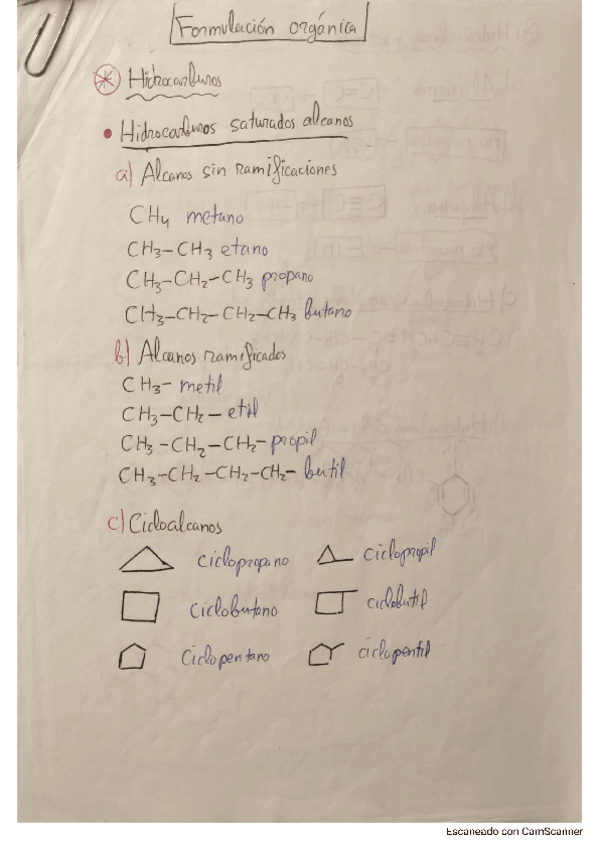 Formulación orgánica
Hidrocarburos
• Hidrocarburos saturados alcanos
a) Alcanos sin ramificaciones
CH4 metano
CH3-CH3 etano
CH3-CH2-CH3 propano
CH3-CH2-CH2-CH3 butano
b) Alcanos ramificados
CH3- metil
CH3-CH2- etil
CH3-CH2-CH2- propil
CH3-CH2-CH2-CH2- butil
c) Cicloalcanos
ciclopropano ciclopropil
ciclobutano ciclobutil
ciclopentano ciclopentil
Escaneado con CamScanner